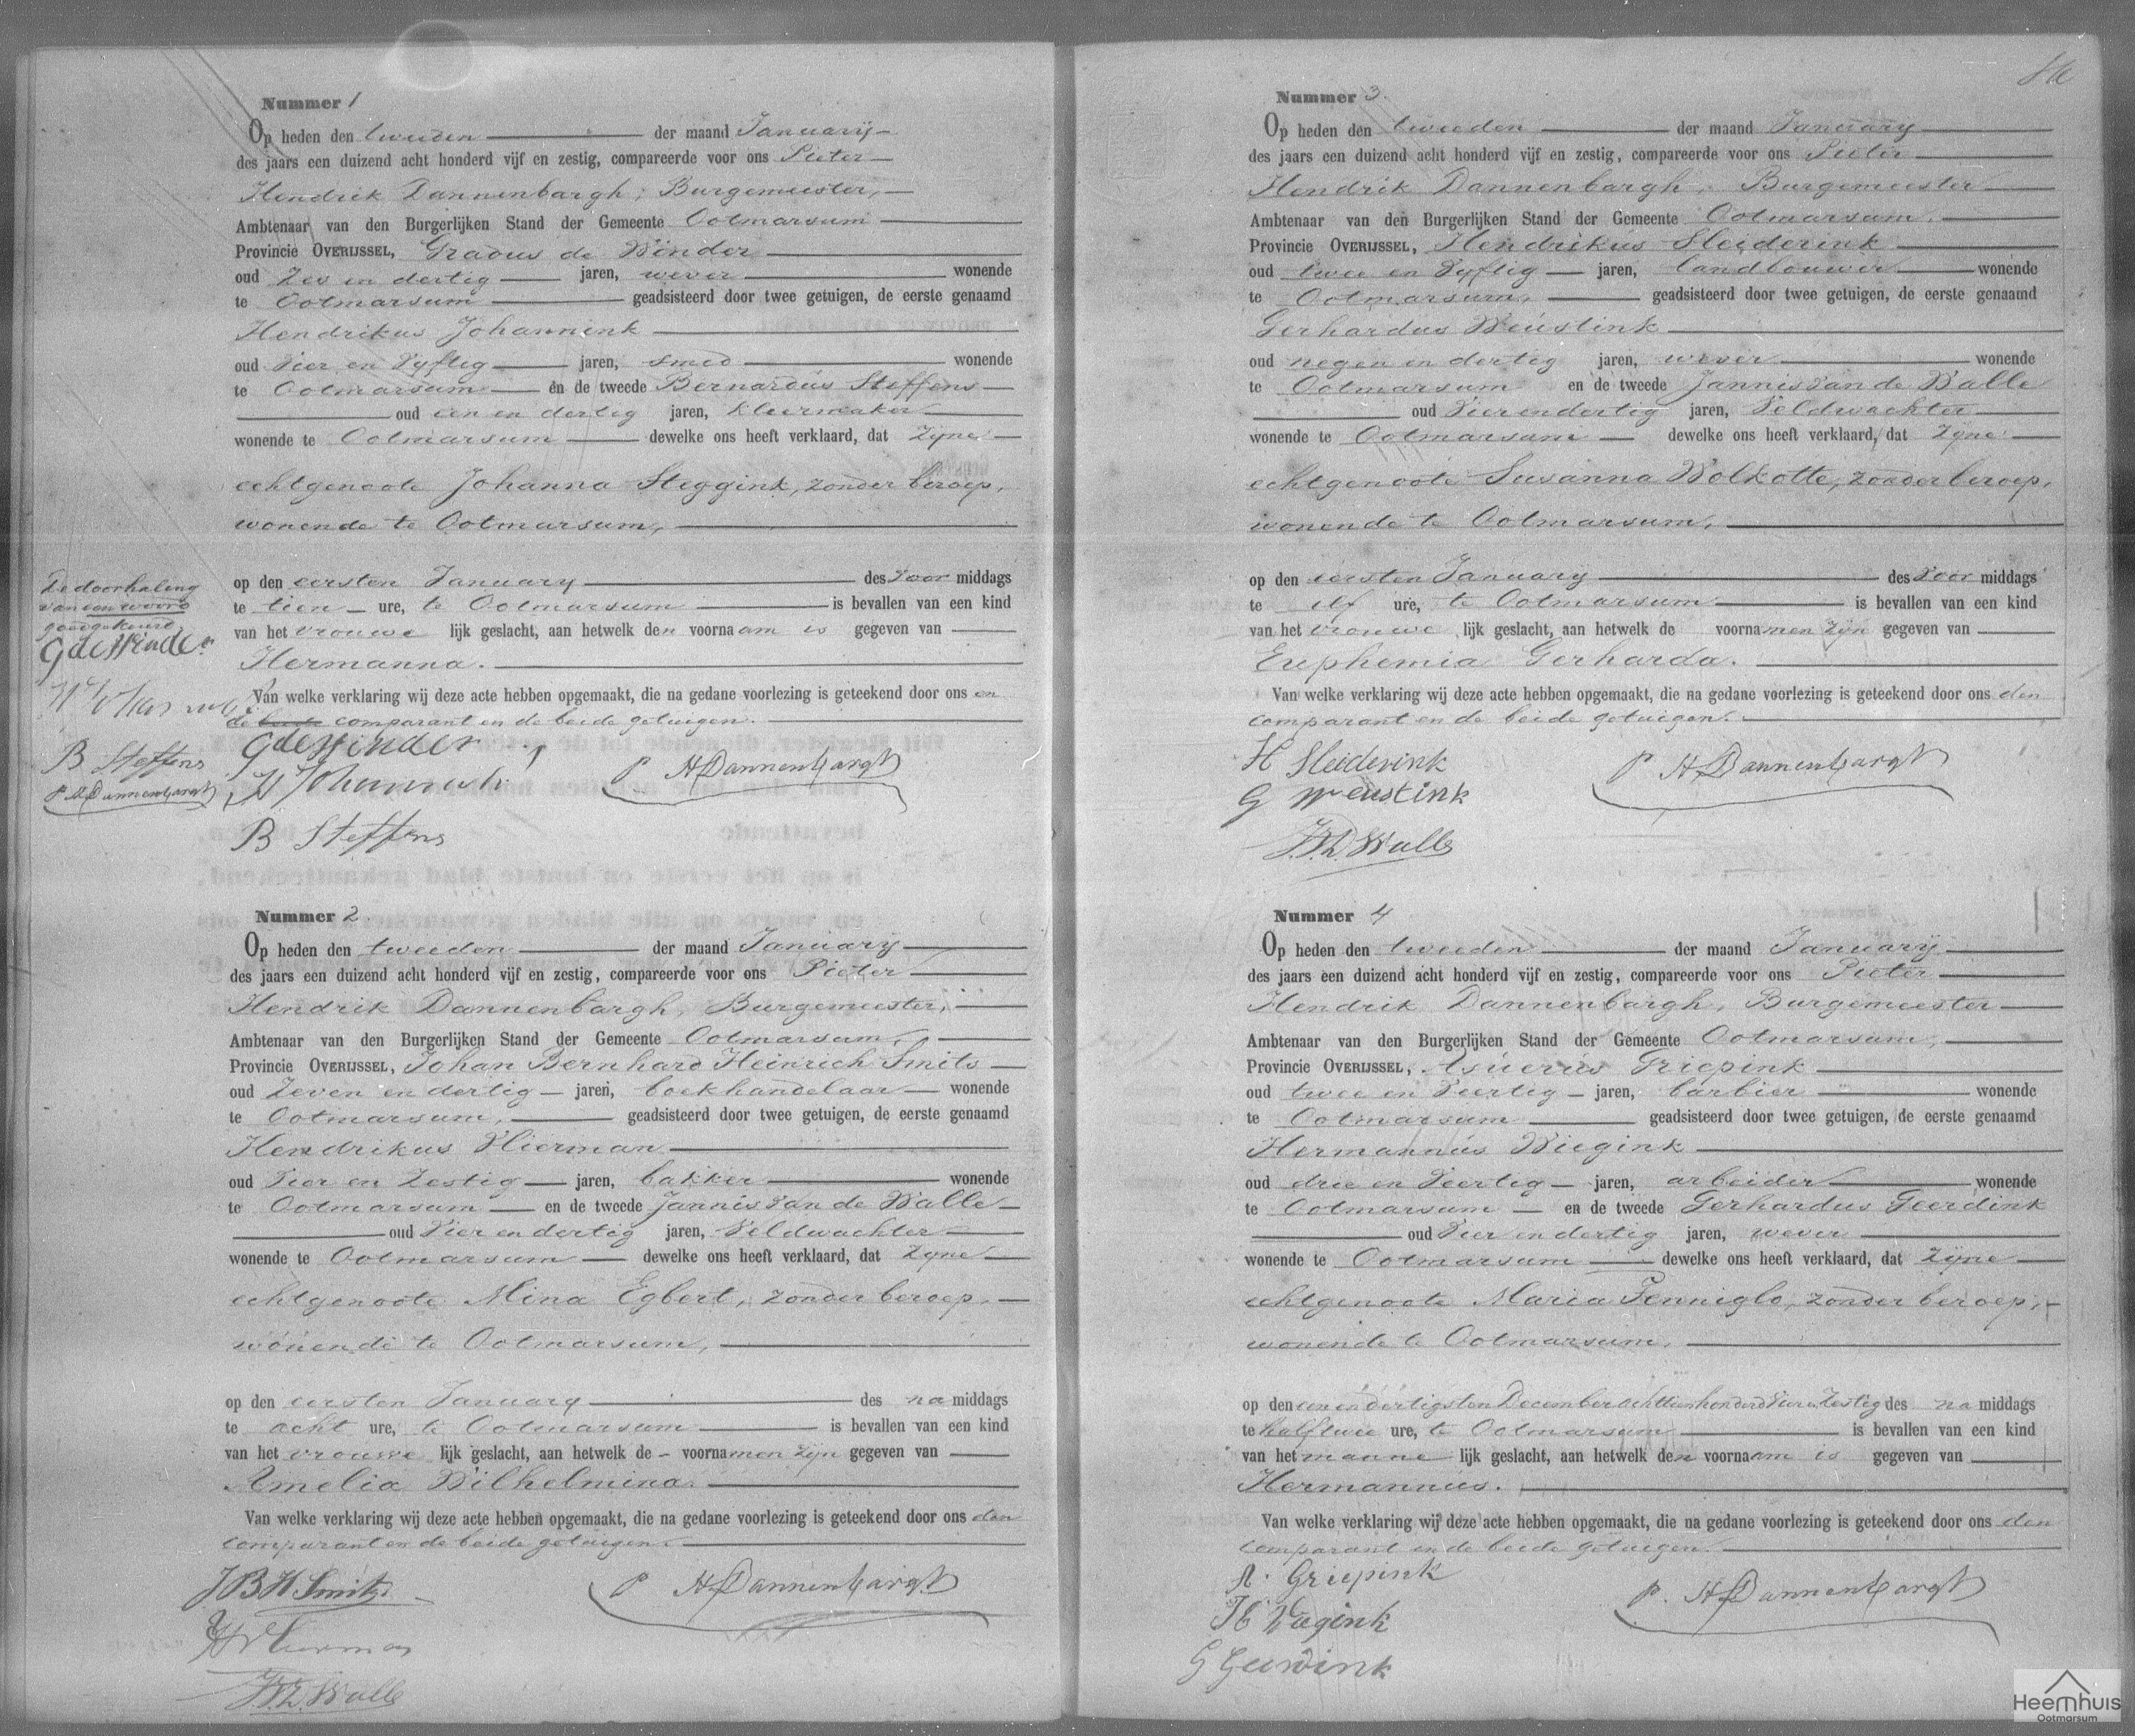 Nummer 1
Op heden den tweeden der maand January
des jaars een duizend acht honderd vijf en zestig, compareerde voor ons Pieter
Hendrik Dannenbargh, Burgemeester,
Ambtenaar van den Burgerlijken Stand der Gemeente Ootmarsum
Provincie OVERIJSSEL, Gradus de Winder
oud Zes en dertig jaren, wever wonende
te Ootmarsum geadsisteerd door twee getuigen, de eerste genaamd
Hendrikus Johannink
oud Vier en Vyftig jaren, smid wonende
te Ootmarsum en de tweede Bernardus Steffens
oud een en dertig jaren, kleermaker
wonende te Ootmarsum dewelke ons heeft verklaard, dat Zyne
echtgenoote Johanna Steggink, zonder beroep,
wonende te Ootmarsum,
op den eersten January des Voor middags
te tien ure, te Ootmarsum is bevallen van een kind
van het vrouwe lijk geslacht, aan hetwelk den voornaam is gegeven van
Hermanna.
Van welke verklaring wij deze acte hebben opgemaakt, die na gedane voorlezing is geteekend door ons en
de beide comparant en de beide getuigen.
De doorhaling
van een woord
goedgekeurd
G de Winder
B Steffens
P H Dannenbargh
G de Winder
H Johannink
P H Dannenbargh
B Steffens
Nummer 2
Op heden den tweeden der maand January
des jaars een duizend acht honderd vijf en zestig, compareerde voor ons Pieter
Hendrik Dannenbargh, Burgemeester,
Ambtenaar van den Burgerlijken Stand der Gemeente Ootmarsum,
Provincie OVERIJSSEL, Johan Bernhard Heinrich Smits
oud Zeven en dertig jaren, boekhandelaar wonende
te Ootmarsum, geadsisteerd door twee getuigen, de eerste genaamd
Hendrikus Vlierman
oud Vier en Zestig jaren, bakker wonende
te Ootmarsum en de tweede Jannis Van de Walle
oud Vier en dertig jaren, Veldwachter
wonende te Ootmarsum dewelke ons heeft verklaard, dat Zyne
echtgenoote Mina Egbert, zonder beroep,
wonende te Ootmarsum,
op den eersten January des na middags
te acht ure, te Ootmarsum is bevallen van een kind
van het vrouwe lijk geslacht, aan hetwelk de - voornamen zijn gegeven van
Amelia Wilhelmina.
Van welke verklaring wij deze acte hebben opgemaakt, die na gedane voorlezing is geteekend door ons den
comparant en de beide getuigen.
J B H Smits
P H Dannenbargh
H Vlierman
J V D Walle
Nummer 3
Op heden den tweeden der maand January
des jaars een duizend acht honderd vijf en zestig, compareerde voor ons Pieter
Hendrik Dannenbargh, Burgemeester
Ambtenaar van den Burgerlijken Stand der Gemeente Ootmarsum,
Provincie OVERIJSSEL, Hendrikus Sleiderink
oud twee en Vyftig jaren, landbouwer wonende
te Ootmarsum, geadsisteerd door twee getuigen, de eerste genaamd
Gerhardus Weustink
oud negen en dertig jaren, wever wonende
te Ootmarsum en de tweede Jannis Van de Walle
oud Vier en dertig jaren, Veldwachter
wonende te Ootmarsum dewelke ons heeft verklaard, dat Zyne
echtgenoote Susanna Wolkotte, zonder beroep,
wonende te Ootmarsum,
op den eersten January des Voor middags
te elf ure, te Ootmarsum is bevallen van een kind
van het vrouwe lijk geslacht, aan hetwelk de voornamen zijn gegeven van
Euphemia Gerharda.
Van welke verklaring wij deze acte hebben opgemaakt, die na gedane voorlezing is geteekend door ons den
comparant en de beide getuigen.
H Sleiderink
P H Dannenbargh
G Weustink
J V D Walle
Nummer 4
Op heden den tweeden der maand January
des jaars een duizend acht honderd vijf en zestig, compareerde voor ons Pieter
Hendrik Dannenbargh, Burgemeester
Ambtenaar van den Burgerlijken Stand der Gemeente Ootmarsum,
Provincie OVERIJSSEL, Asuerus Griepink
oud twee en Veertig jaren, barbier wonende
te Ootmarsum geadsisteerd door twee getuigen, de eerste genaamd
Hermannus Wiegink
oud drie en Veertig jaren, arbeider wonende
te Ootmarsum en de tweede Gerhardus Geerdink
oud Vier en dertig jaren, wever
wonende te Ootmarsum dewelke ons heeft verklaard, dat Zyne
echtgenoote Maria Tenniglo, zonder beroep,
wonende te Ootmarsum,
op den een en dertigsten December achttienhonderd Vier en Zestig des na middags
te half twee ure, te Ootmarsum is bevallen van een kind
van het manne lijk geslacht, aan hetwelk den voornaam is gegeven van
Hermannus.
Van welke verklaring wij deze acte hebben opgemaakt, die na gedane voorlezing is geteekend door ons den
comparant en de beide getuigen.
A. Griepink
P. H Dannenbargh
H Wiegink
G Geerdink
Heemhuis
Ootmarsum